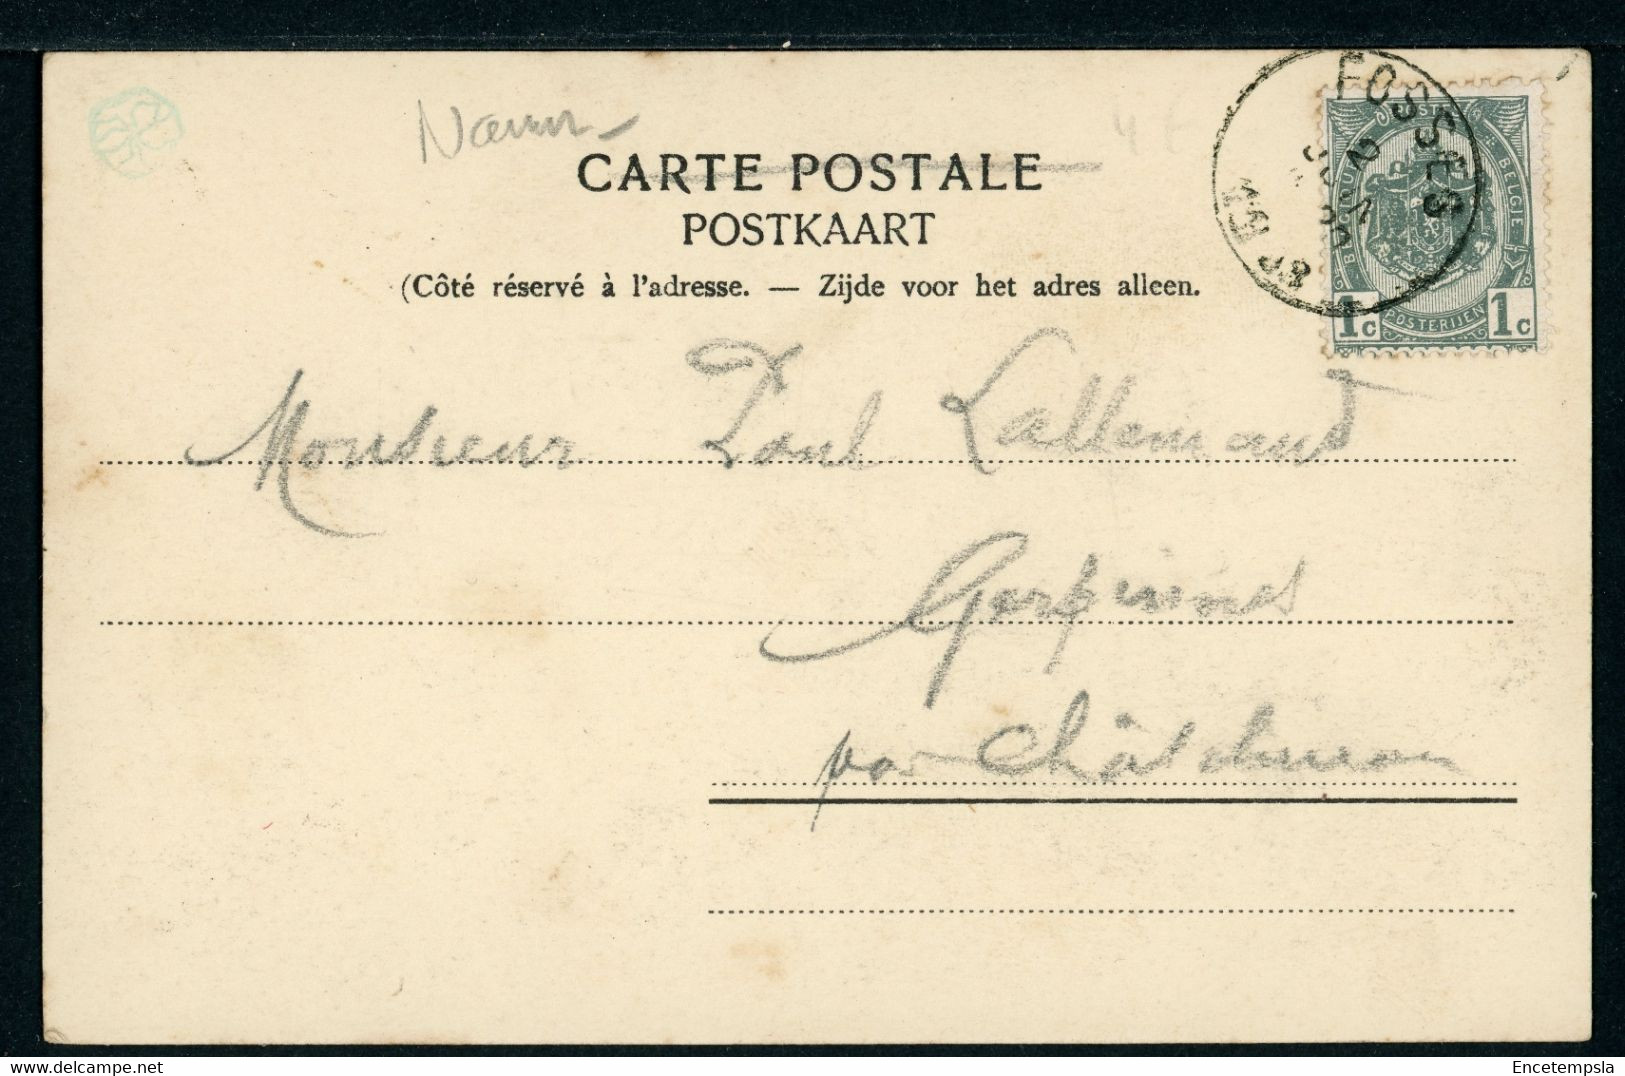 Namur
CARTE POSTALE
POSTKAART
(Côté réservé à l'adresse. — Zijde voor het adres alleen.
FOSSES
BELGIQUE
POSTERIJEN
1c 1c
Monsieur Paul Lallemand
Gerpinnes
par Châtelineau
Encetempsla